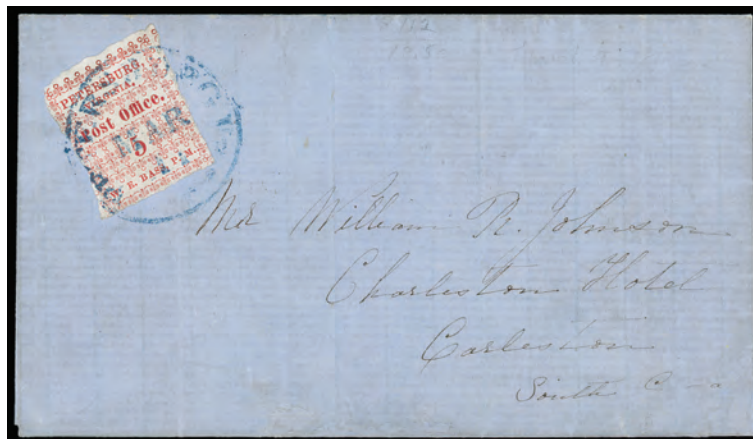 PETERSBURG,
VIRGINIA.
Post Office.
MAR
5
W. E. BASS P. M.
Mr William R. Johnson
Charleston Hotel
Carleston
South